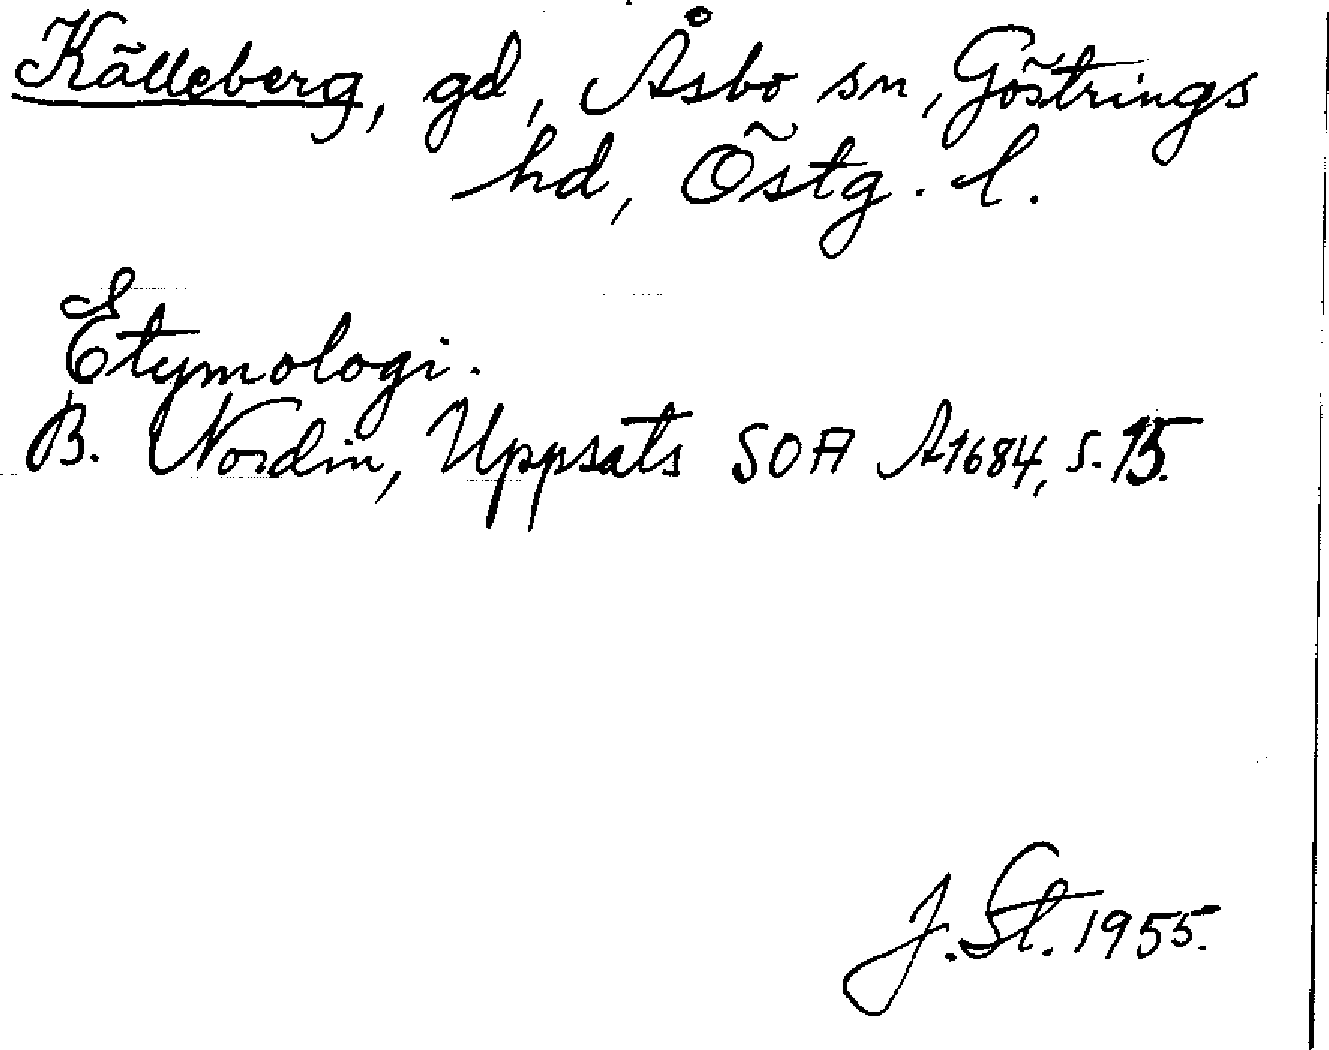 Källeberg, gd, Åsbo sn, Göstrings
hd, Östg. l.
Etymologi.
B. Nordin, Uppsats SOA A1684, s. 15.
J. St. 1955.